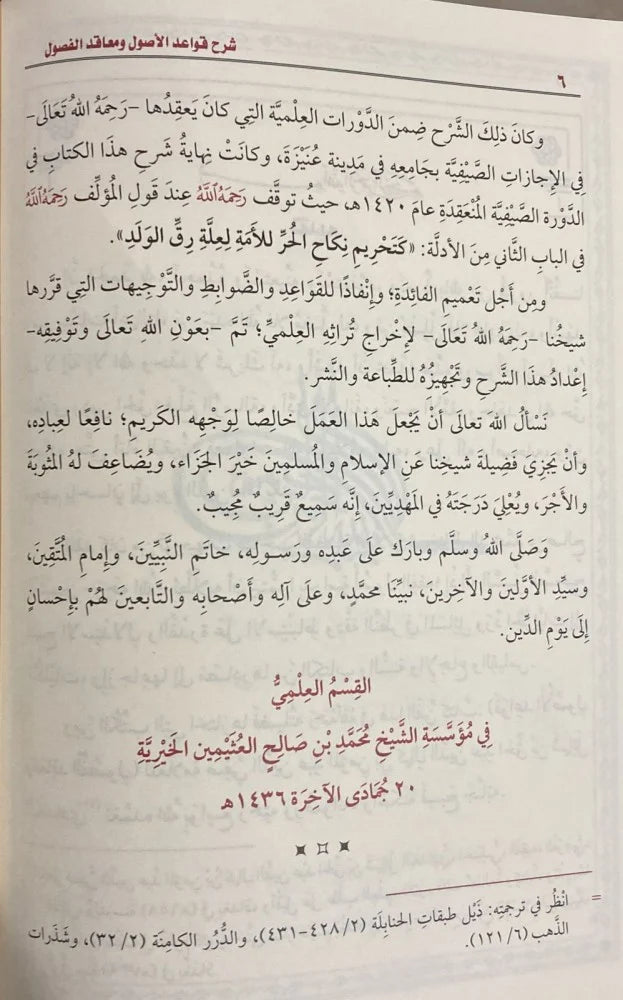 شرح قواعد الأصول ومعاقد الفصول
٦
وكانَ ذلِكَ الشَّرْح ضِمنَ الدَّوْرات العِلميَّة التِي كانَ يَعقِدُها -رَحِمَهُ اللهُ تَعَالَى-
فِي الإِجازات الصَّيْفِيَّة بجَامِعِهِ في مَدِينة عُنَيْزَةَ، وكانَتْ نِهايةُ شَرح هذَا الكِتابِ في
الدَّوْرة الصَّيْفِيَّة المُنعَقِدَةِ عامَ ١٤٢٠هـ، حيثُ توقَّف رَحِمَهُ اللَّهُ عِندَ قَولِ المُؤلِّف رَحِمَهُ اللَّهُ
في البابِ الثَّاني مِنَ الأدلَّة: «كَتَحْرِيمِ نِكَاحِ الْحُرِّ للأَمَةِ لِعِلَّةِ رِقِّ الوَلَدِ».
ومِن أَجْل تَعْمِيمِ الفائِدَةِ؛ وإِنْفاذًا للقَوَاعِدِ والضَّوابِطِ والتَّوْجِيهات التِي قرَّرها
شيخُنا -رَحِمَهُ اللهُ تَعَالَى- لإِخْراجِ تُراثِهِ العِلْمِيِّ؛ تَمَّ -بعَوْنِ اللهِ تَعالَى وتَوْفِيقِه-
إِعْدادُ هذَا الشَّرْحِ وتَجْهِيزُهُ للطِّباعة والنَّشْر.
نَسْأَلُ اللهَ تعالَى أنْ يَجْعلَ هَذا العَمَلَ خالِصًا لِوَجْهِه الكَرِيمِ؛ نافِعًا لعِبادِه،
وأنْ يَجزِيَ فَضِيلةَ شيخِنا عَنِ الإسلامِ والمُسلمِينَ خَيْرَ الجَزَاء، ويُضَاعِفَ لهُ المَثُوبَةَ
والأَجْرَ، ويُعْلِيَ دَرَجَتَهُ في المَهْدِيِّينَ، إِنَّه سَمِيعٌ قَرِيبٌ مُجِيبٌ.
وَصَلَّى اللهُ وسلَّم وبارَك علَى عَبدِه ورَسولِه، خاتَمِ النَّبِيِّينَ، وإِمامِ المُتَّقِينَ،
وسيِّدِ الأوَّلينَ والآخِرِينَ، نبيِّنَا محمَّدٍ، وعلَى آلِه وأَصْحابِه والتَّابعينَ لهُمْ بإِحْسانٍ
إلَى يَوْمِ الدِّين.
القِسْمُ العِلْمِيُّ
فِي مُؤَسَّسَةِ الشَّيْخِ مُحَمَّدِ بْنِ صَالِحٍ العُثَيْمِين الخَيْرِيَّةِ
٢٠ جُمَادَى الآخِرَة ١٤٣٦هـ
= انْظُر في ترجمتِه: ذَيْل طبقاتِ الحنابِلَة (٢/ ٤٢٨-٤٣١)، والدُّرَر الكامِنَة (٢/ ٣٢)، وشَذَرات
الذَّهب (٦/ ١٢١).